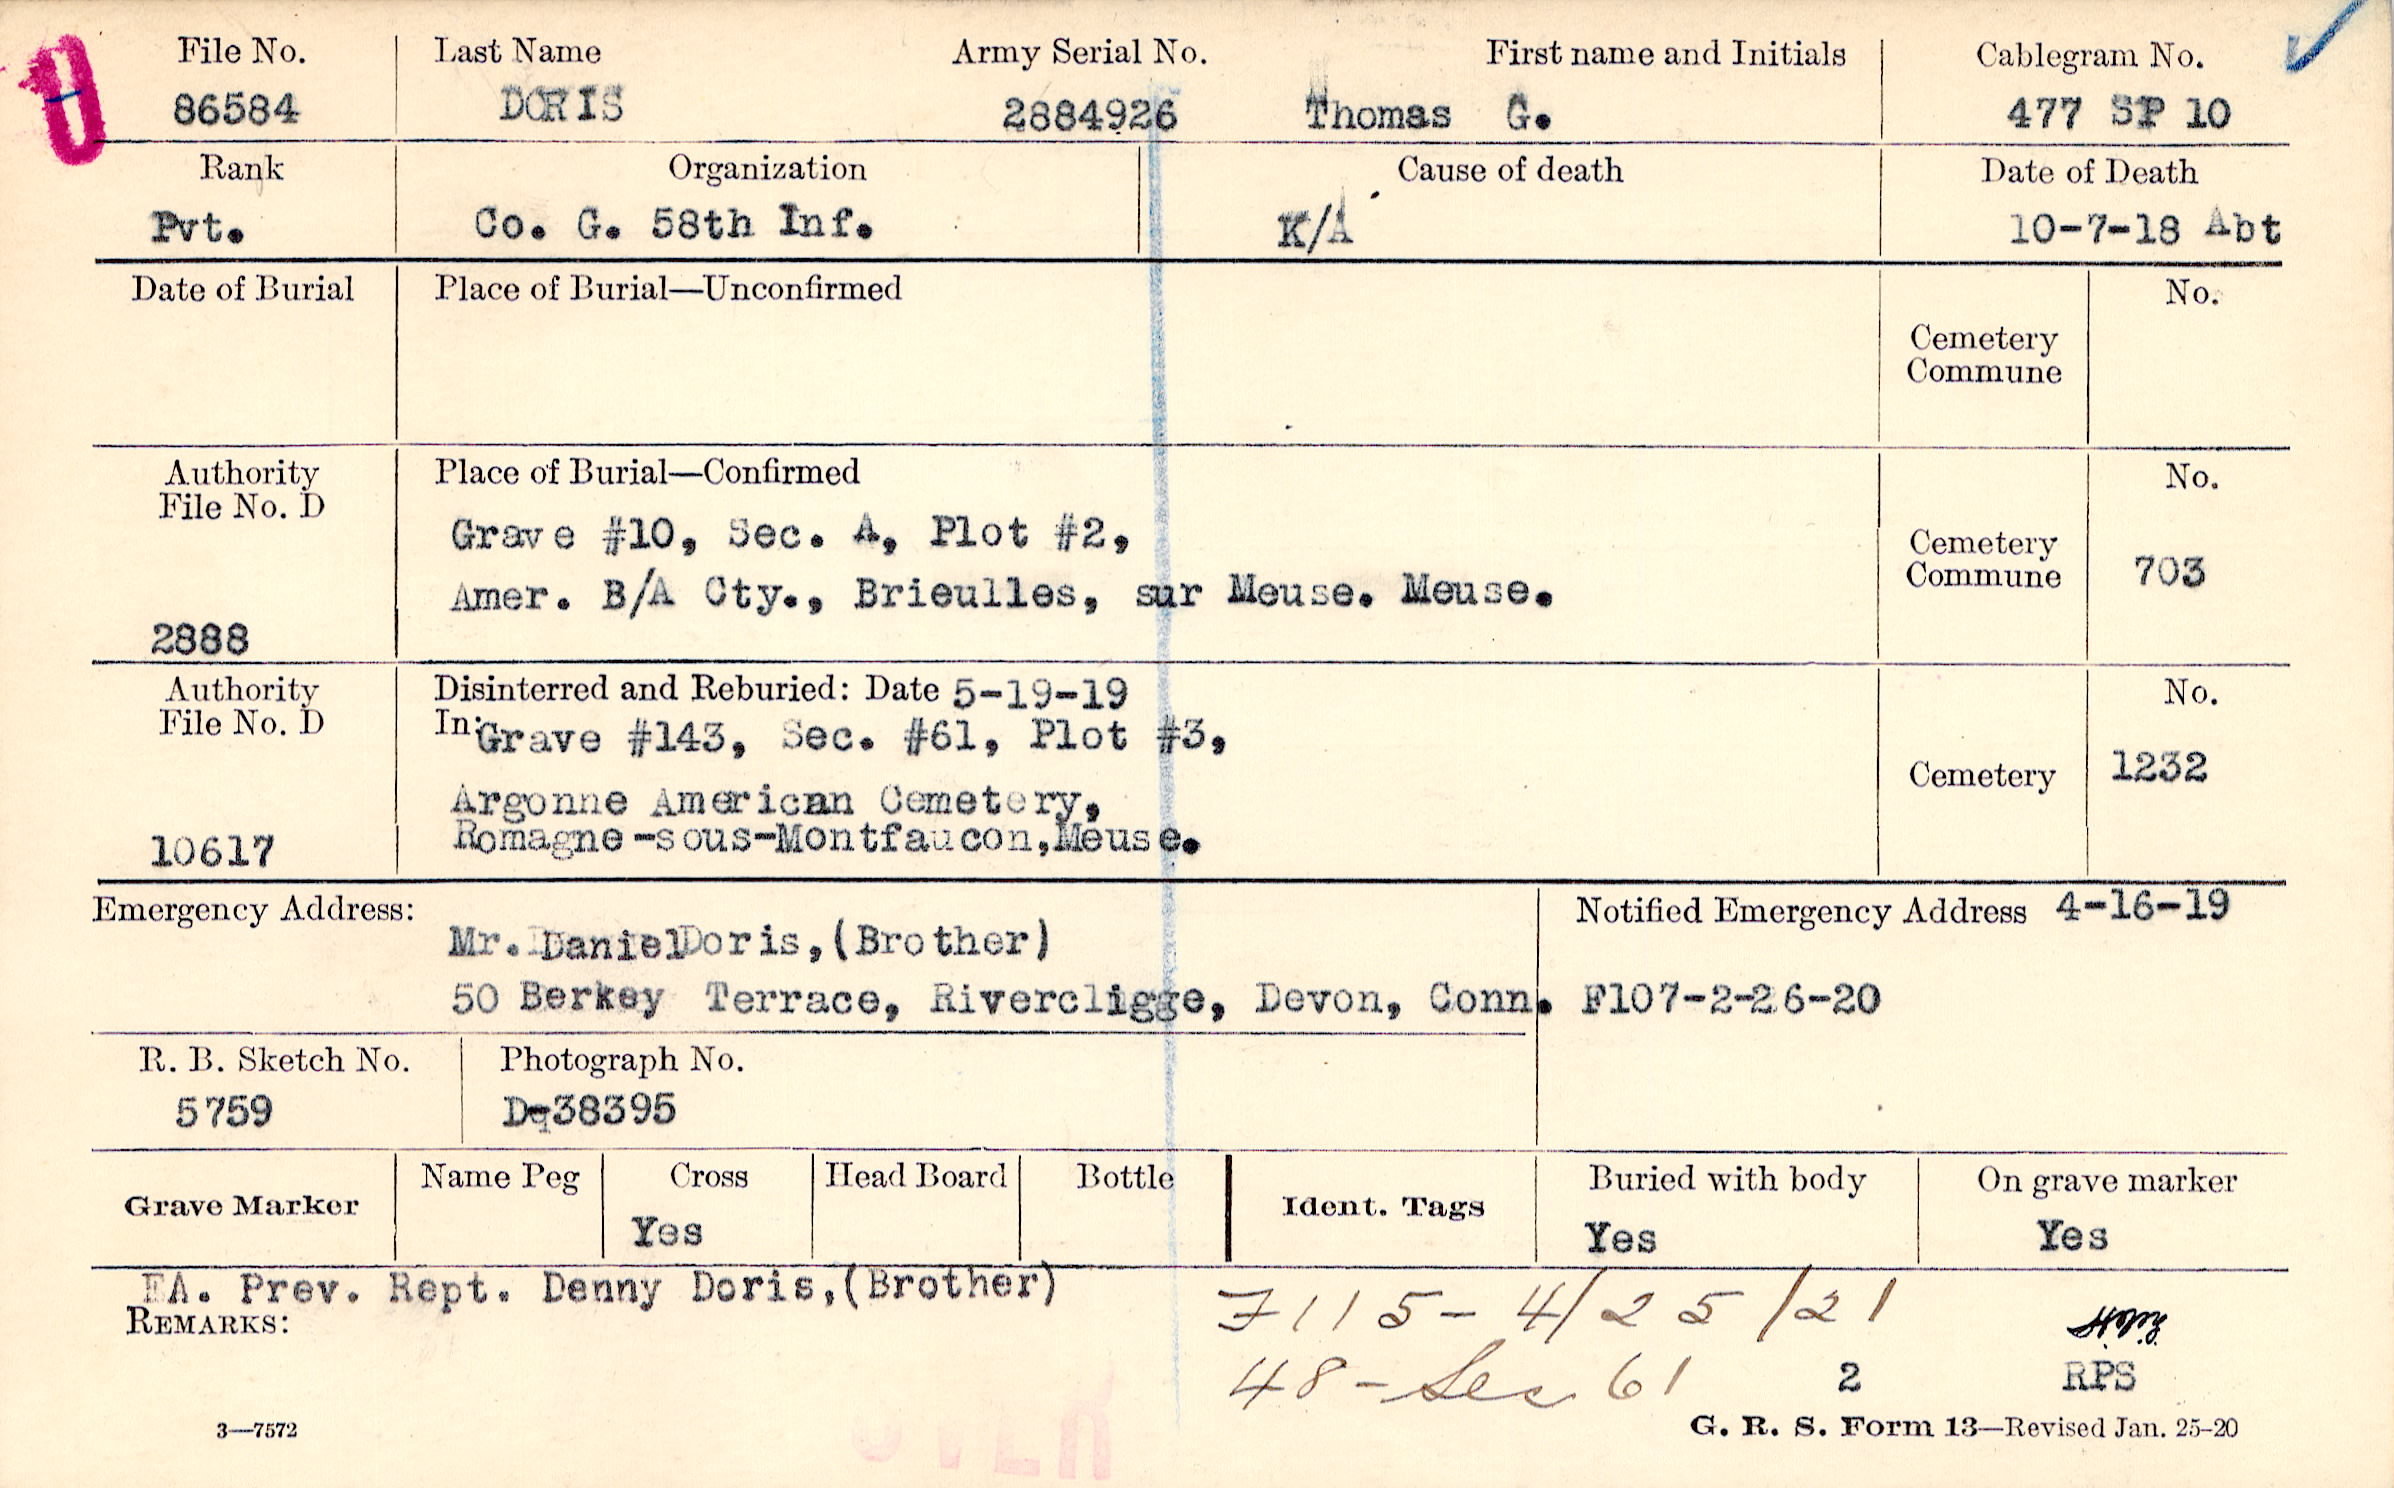 File No. Last Name Army Serial No. First name and Initials Cablegram No.
86584 DORIS 2884926 Thomas G. 477 SP 10
Rank Organization Cause of death Date of Death
Pvt. Co. G. 58th Inf. K/A 10-7-18 Abt
Date of Burial Place of Burial—Unconfirmed No.
Cemetery
Commune
Authority Place of Burial—Confirmed No.
File No. D
Grave #10, Sec. A, Plot #2,
Cemetery
Commune 703
Amer. B/A Cty., Brieulles, sur Meuse. Meuse.
2888
Authority Disinterred and Reburied: Date 5-19-19 No.
File No. D In: Grave #143, Sec. #61, Plot #3,
Cemetery 1232
Argonne American Cemetery,
10617 Romagne-sous-Montfaucon, Meuse.
Emergency Address: Notified Emergency Address 4-16-19
Mr. Daniel Doris, (Brother)
50 Berkey Terrace, Rivercligge, Devon, Conn. F107-2-26-20
R. B. Sketch No. Photograph No.
5759 D-38395
Grave Marker Name Peg Cross Head Board Bottle Ident. Tags Buried with body On grave marker
Yes Yes Yes
EA. Prev. Rept. Denny Doris, (Brother)
REMARKS: F115-4/25/21
48 - Sec 61 2 RPS
3—7572 G. R. S. Form 13—Revised Jan. 25-20